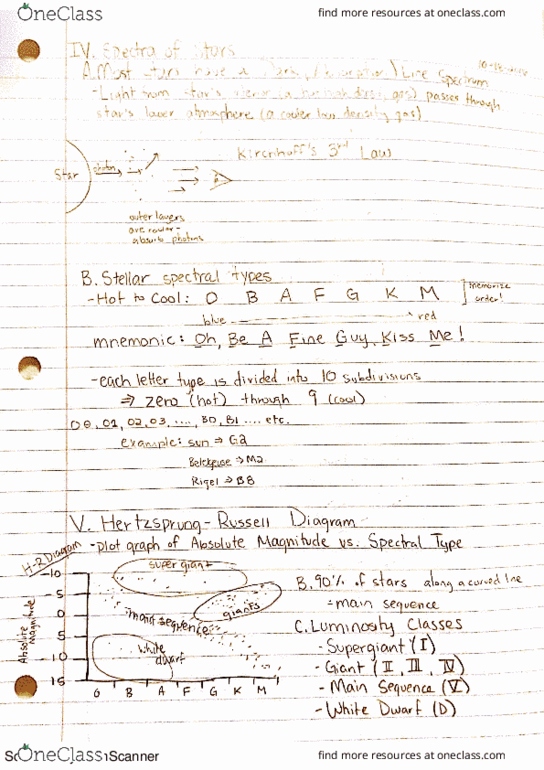 OneClass
find more resources at oneclass.com
IV. Spectra of Stars
10-December
A. Most stars have a Dark, (Absorption) Line Spectrum
-Light from star's interior (a hot, high density gas) passes through
star's lower atmosphere (a cooler low density gas)
Kirchhoff's 3rd Law
Star
photons
outer layers
are cooler-
absorb photons
B. Stellar spectral types
-Hot to Cool: O B A F G K M
memorize
order!
blue red
mnemonic: Oh, Be A Fine Guy, Kiss Me!
-each letter type is divided into 10 subdivisions
⇒ zero (hot) through 9 (cool)
O0, O1, O2, O3, ...., B0, B1 .... etc.
example: sun → G2
Betelgeuse → M2
Rigel → B8
V. Hertzsprung-Russell Diagram
H-R Diagram
-plot graph of Absolute Magnitude vs. Spectral Type
Absolute
Magnitude
-10
-5
0
5
10
15
super giant
giants
main sequence
white
dwarf
O B A F G K M
B. 90% of stars along a curved line
=main sequence
C. Luminosity Classes
-Supergiant (I)
-Giant (II, III, IV)
-Main Sequence (V)
-White Dwarf (D)
OneClass
Scanner
find more resources at oneclass.com